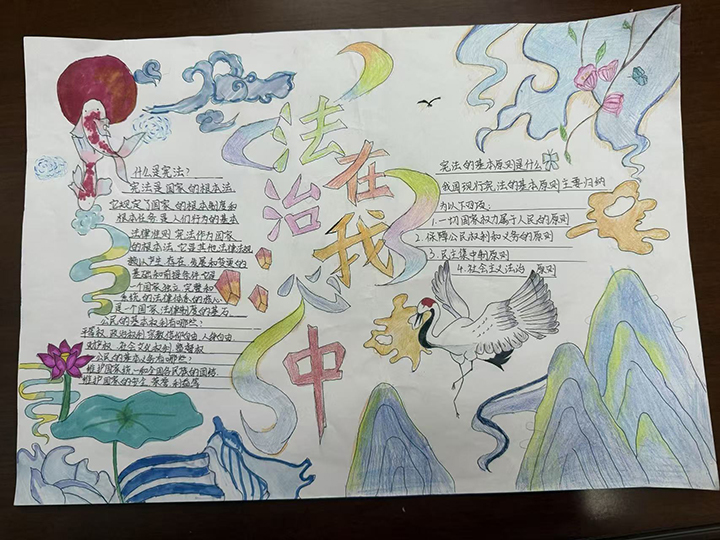 法治
在我
心
中
什么是宪法?
宪法是国家的根本法,
它规定了国家的根本制度和
根本任务是人们行为的基本
法律准则 宪法作为国家
的根本法,它是其他法律法规
赖以产生 存在 发展和变更的
基础和前提条件
一个国家独立 完整和
系统的法律体系的核心
是一个国家法律制度的基石
公民的基本权利有哪些?
平等权 政治权利 宗教信仰自由 人身自由
财产权 社会文化权利 监督权
公民的基本义务有哪些?
维护国家统一和全国各民族的团结
维护国家的安全 荣誉 利益等
宪法的基本原则是什么
我国现行宪法的基本原则主要归纳
为以下
1.一切国家权力属于人民的原则
2.保障公民权利和义务的原则
3.民主集中制原则
4.社会主义法治 原则